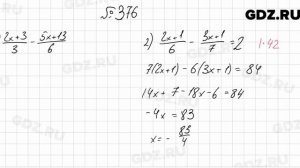 GDZ.RU
№376
2x+3/3 - 5x+13/6
2) 2x+1/6 - 3x+1/7 = 2 |·42
7(2x+1) - 6(3x+1) = 84
14x + 7 - 18x - 6 = 84
-4x = 83
x = - 83/4